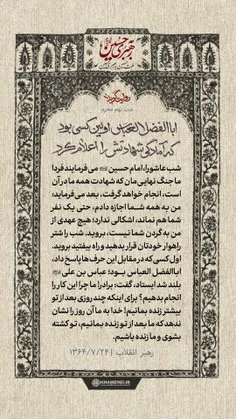 روایت‌گری
شب نهم محرم
اباالفضل العباس اولین کسی بود
که آمادگی شهادتش را اعلام کرد
شب عاشورا، امام حسین می‌فرمایند فردا
ما جنگ نهایی‌مان که شهادت همه ما در آن
است، انجام خواهد گرفت. بعد می‌فرماید:
من به همه شما اجازه دادم، حتی یک نفر
شما هم نماند، اشکالی ندارد؛ هیچ عهدی از
من به گردن شما نیست، بروید. شب را شتر
راهوار خودتان قرار بدهید و راه بیفتید بروید.
اول کسی که در مقابل این حرف ها پاسخ داد،
اباالفضل العباس بود؛ عباس بن علی
بلند شد ایستاد، گفت: برادر! ما چرا این کار را
انجام بدهیم؟ برای اینکه چند روزی بعد از تو
بیشتر زنده بمانیم! خدا به ما آن روز را نشان
ندهد که ما بعد از تو زنده بمانیم، تو کشته
بشوی و ما زنده باشیم.
رهبر انقلاب | ۱۳۶۴/۷/۲۴
KHAMENEI.IR